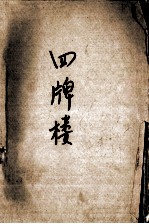 四牌楼